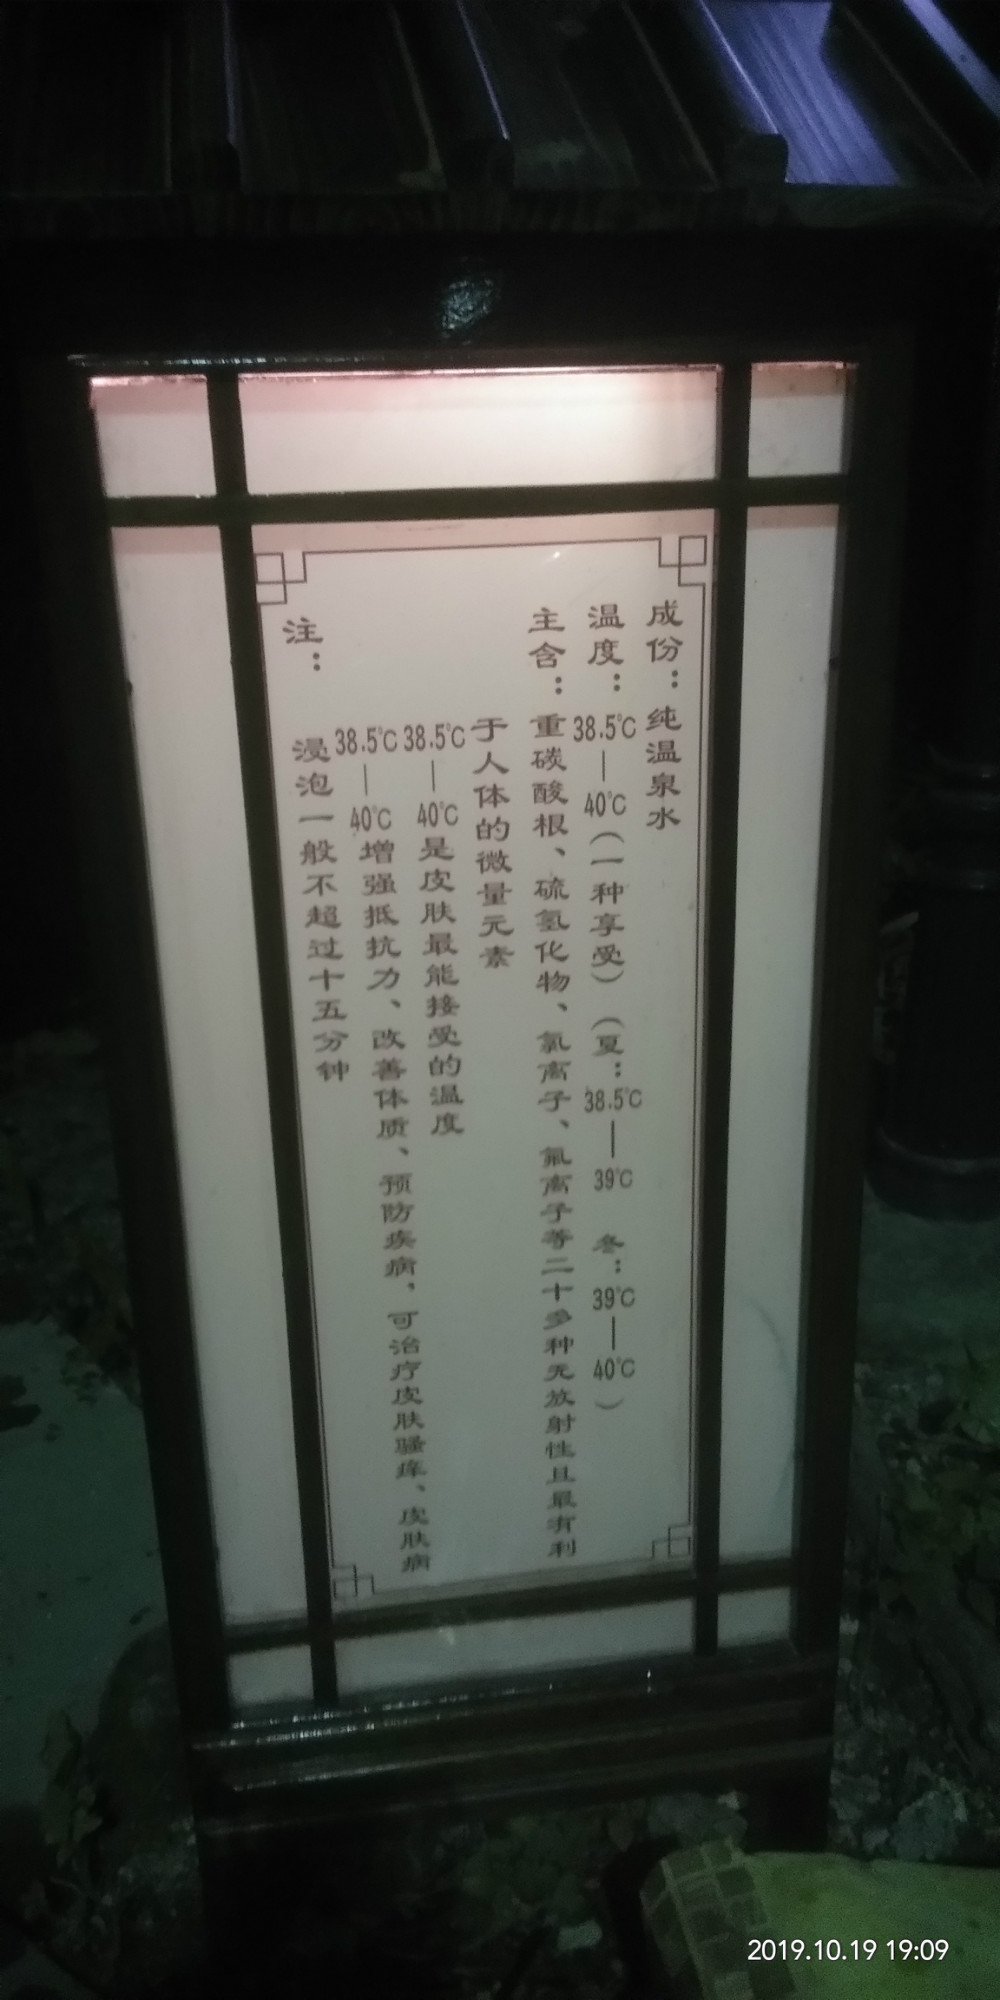 成份：纯温泉水
温度：38.5℃—40℃（一种享受）（夏：38.5℃—39℃ 冬：39℃—40℃）
主含：重碳酸根、硫氢化物、氯离子、氟离子等二十多种无放射性且最有利
于人体的微量元素
38.5℃—40℃是皮肤最能接受的温度
38.5℃—40℃增强抵抗力、改善体质、预防疾病，可治疗皮肤骚痒、皮肤病
注：浸泡一般不超过十五分钟
2019.10.19 19:09